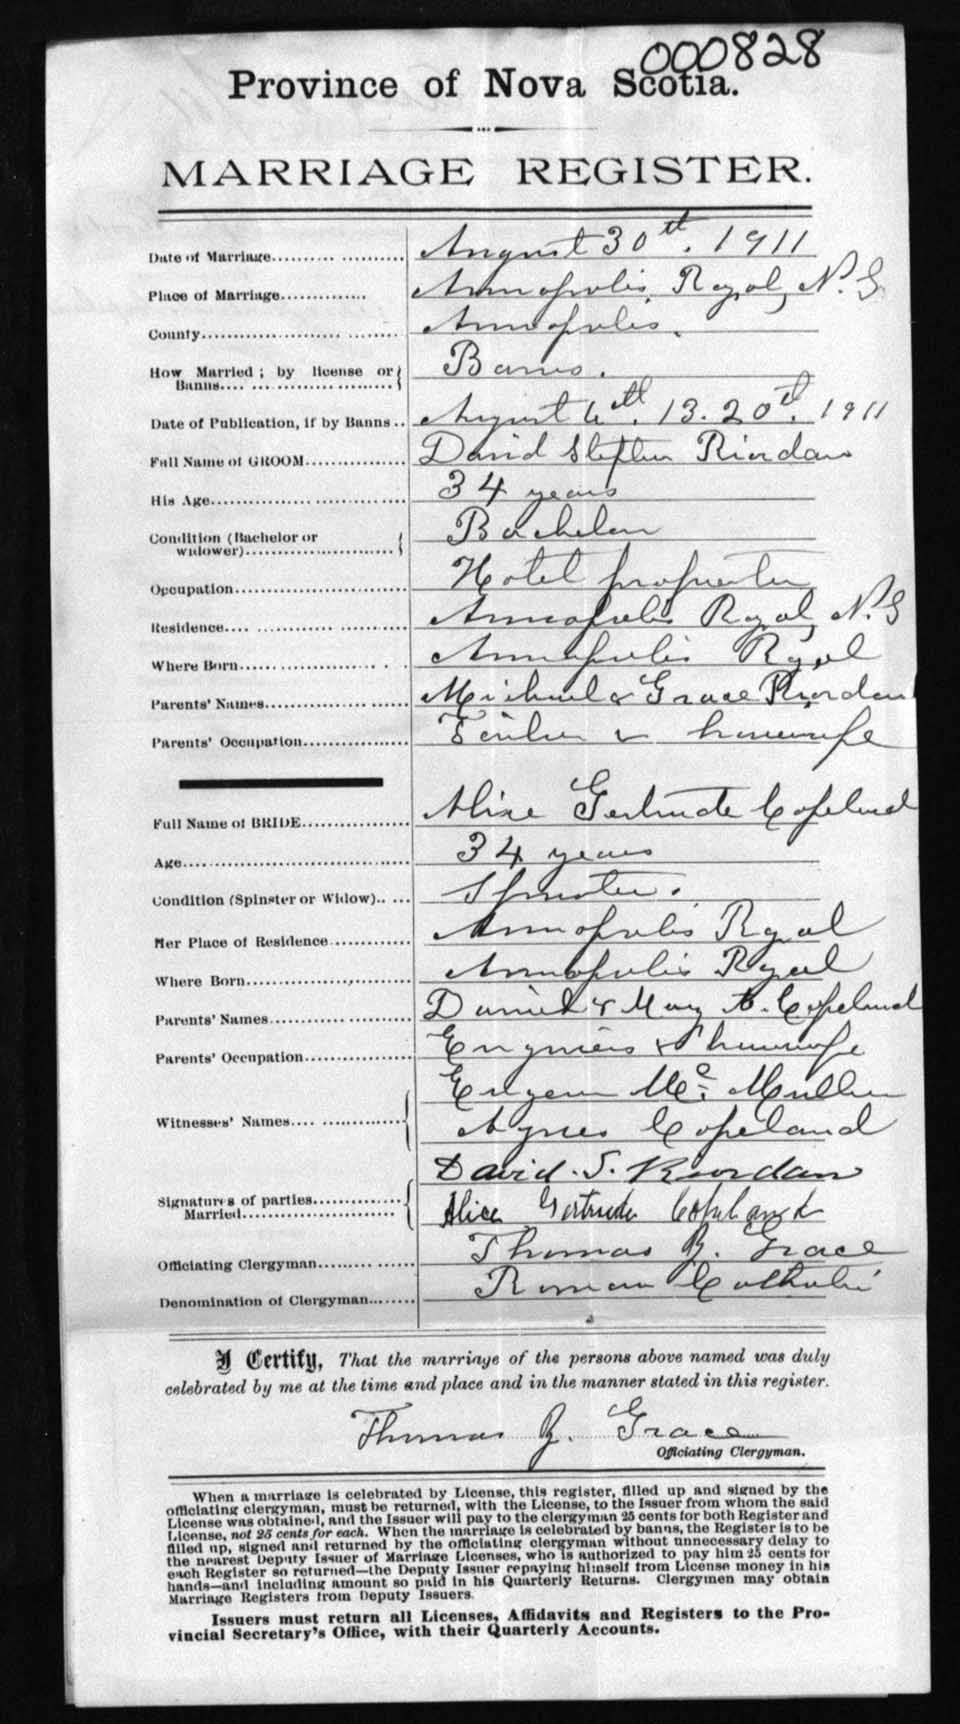 000828
Province of Nova Scotia.
MARRIAGE REGISTER.
Date of Marriage.... August 30th. 1911
Place of Marriage.... Annapolis Royal, N.S.
County.... Annapolis.
How Married ; by license or
Banns.... Banns.
Date of Publication, if by Banns.. August 6th. 13. 20th. 1911
Full Name of GROOM.... David Stephen Riordan
His Age.... 34 years
Condition (Bachelor or
widower).... Bachelor
Occupation.... Hotel proprietor
Residence.... Annapolis Royal, N.S
Where Born.... Annapolis Royal
Parents' Names.... Michael & Grace Riordan
Parents' Occupation.... & housewife
Full Name of BRIDE.... Alice Gertrude Copeland
Age.... 34 years
Condition (Spinster or Widow).. ... Spinster.
Her Place of Residence.... Annapolis Royal
Where Born.... Annapolis Royal
Parents' Names.... Daniel & Mary A. Copeland
Parents' Occupation.... & housewife
Eugene Mc. Mullen
Witnesses' Names.... Agnes Copeland
David. S. Riordan
Signatures of parties....
Married.... Alice Gertrude Copeland
Officiating Clergyman.... Thomas B. Grace
Denomination of Clergyman.... Roman Catholic
I Certify, That the marriage of the persons above named was duly
celebrated by me at the time and place and in the manner stated in this register.
Thomas B. Grace
Officiating Clergyman.
When a marriage is celebrated by License, this register, filled up and signed by the
officiating clergyman, must be returned, with the License, to the Issuer from whom the said
License was obtained, and the Issuer will pay to the clergyman 25 cents for both Register and
License, not 25 cents for each. When the marriage is celebrated by banns, the Register is to be
filled up, signed and returned by the officiating clergyman without unnecessary delay to
the nearest Deputy Issuer of Marriage Licenses, who is authorized to pay him 25 cents for
each Register so returned—the Deputy Issuer repaying himself from License money in his
hands—and including amount so paid in his Quarterly Returns. Clergymen may obtain
Marriage Registers from Deputy Issuers.
Issuers must return all Licenses, Affidavits and Registers to the Pro-
vincial Secretary's Office, with their Quarterly Accounts.